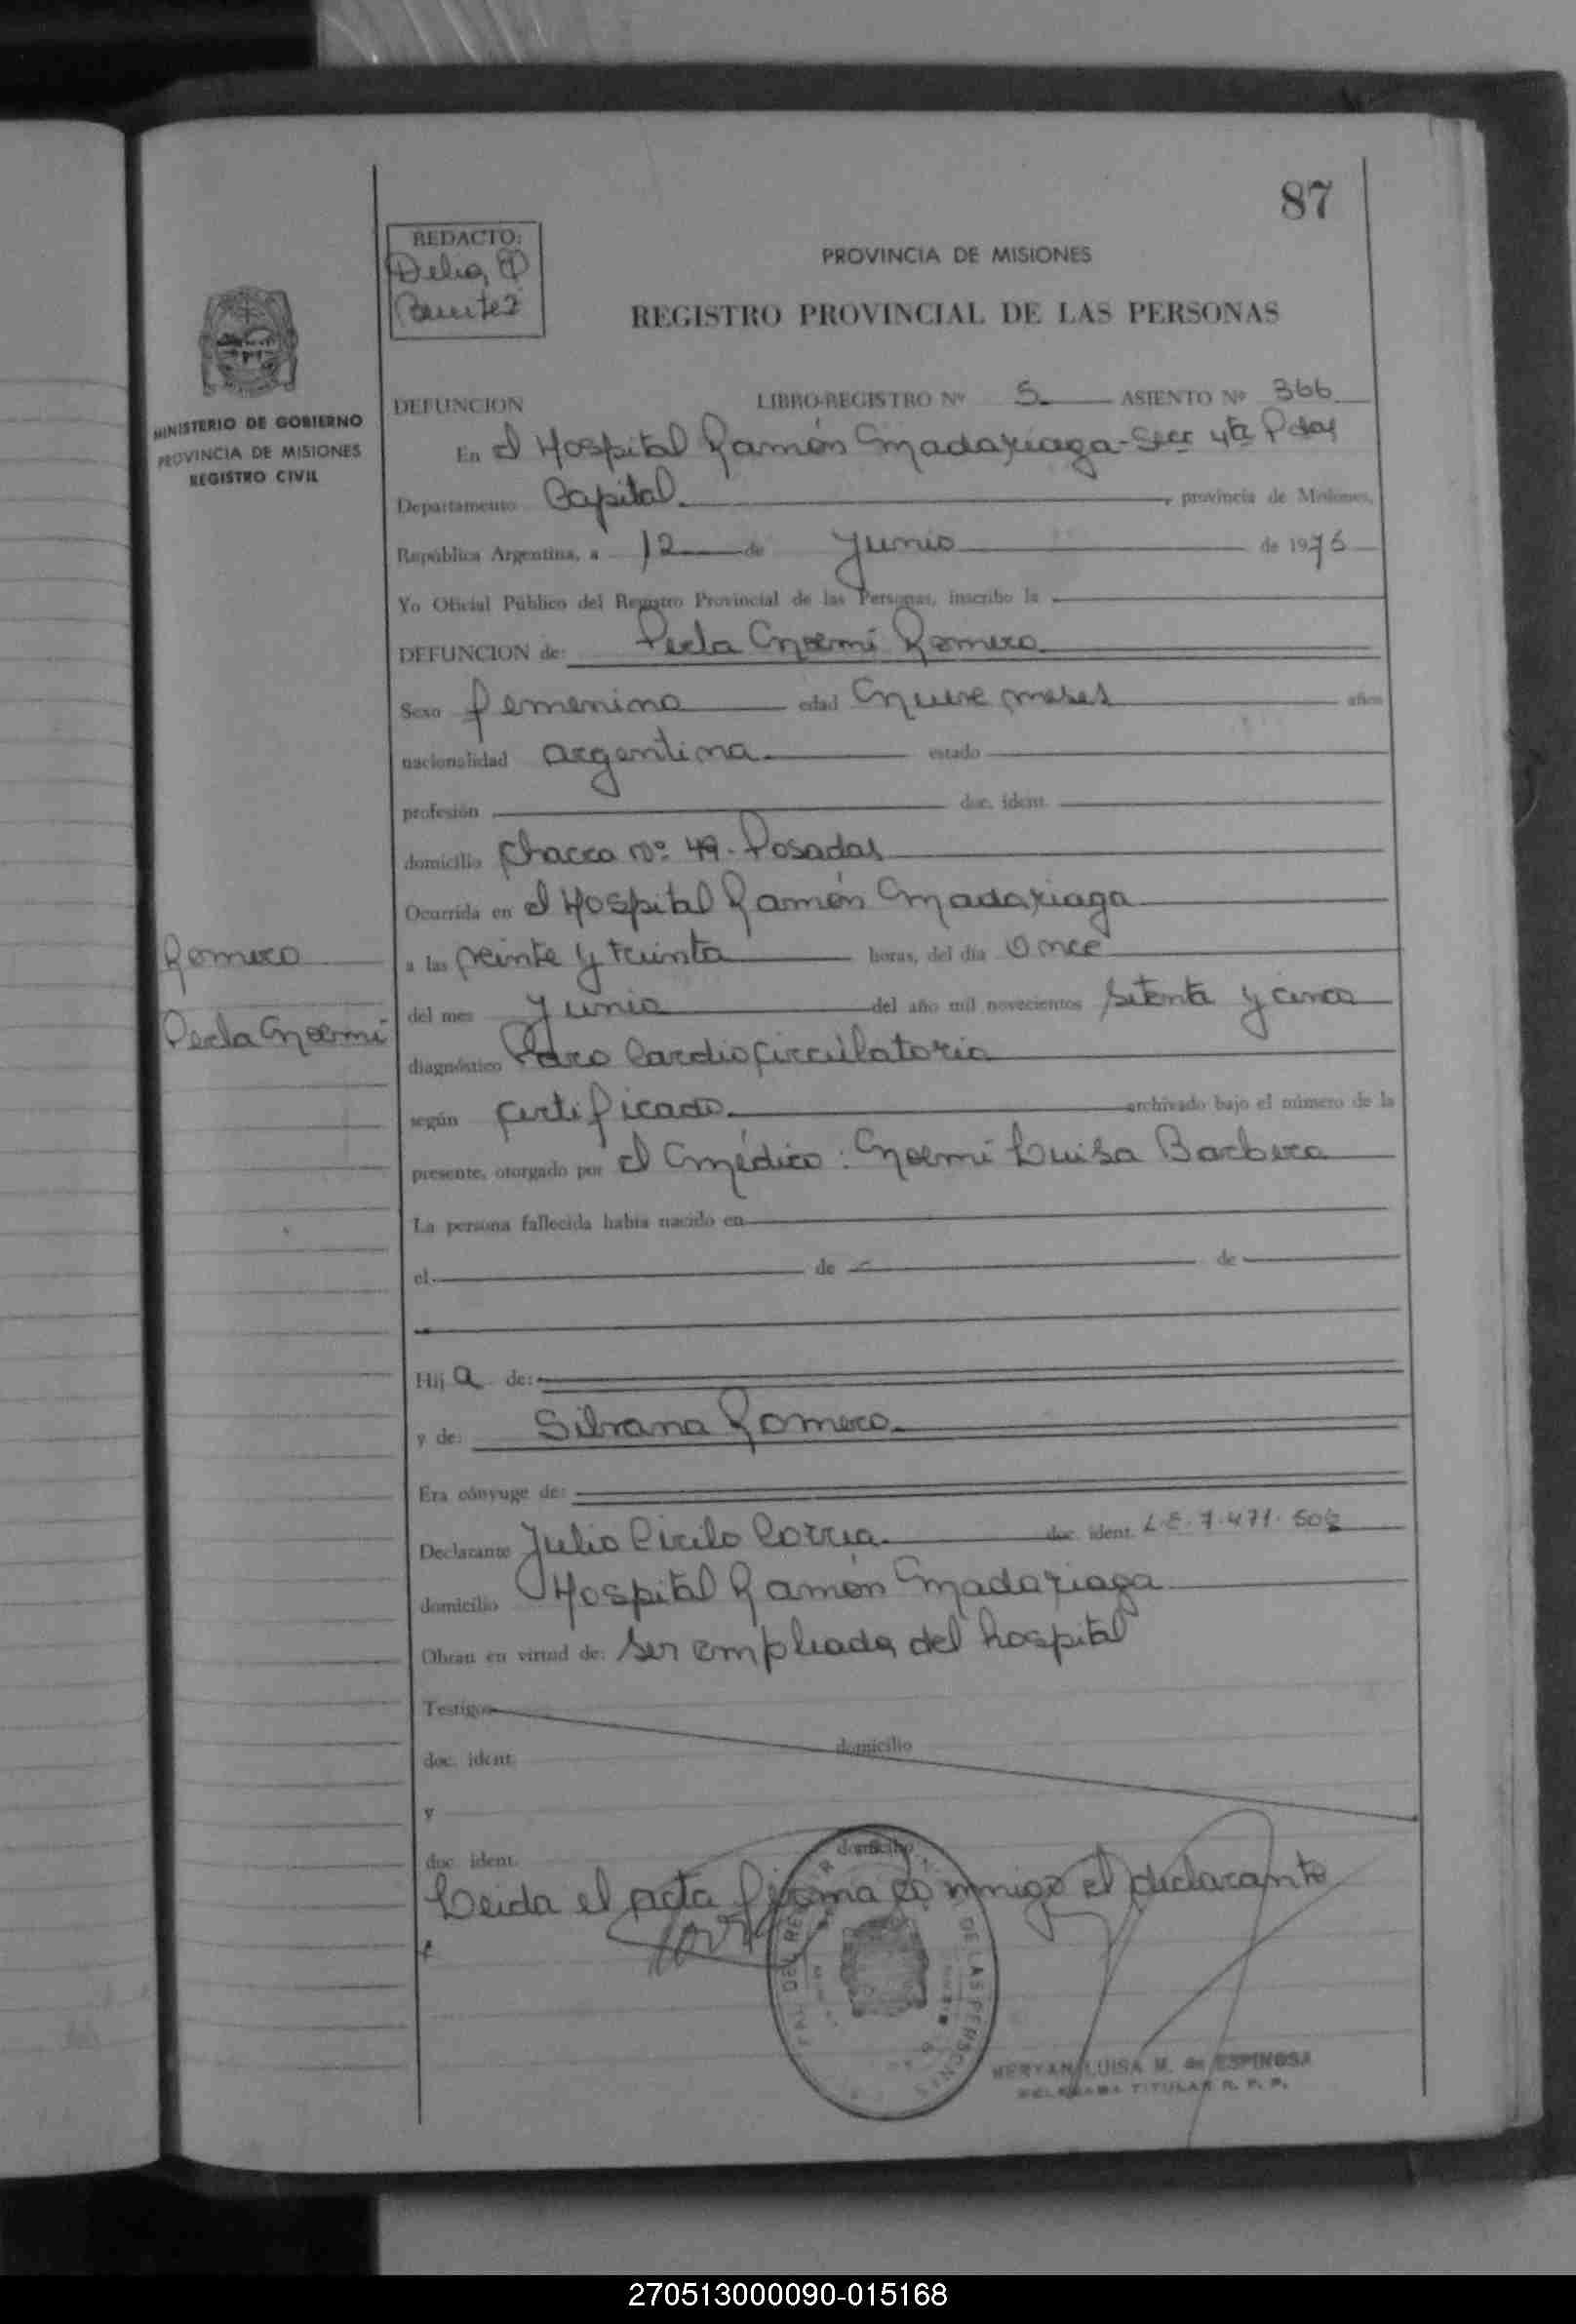 87
REDACTO:
Delia
Benitez
PROVINCIA DE MISIONES
REGISTRO PROVINCIAL DE LAS PERSONAS
MINISTERIO DE GOBIERNO
PROVINCIA DE MISIONES
REGISTRO CIVIL
DEFUNCION LIBRO-REGISTRO Nº 5 ASIENTO Nº 366
En el Hospital Ramón Madariaga - Secc 4ta Pdas
Departamento Capital, provincia de Misiones,
República Argentina, a 12 de Junio de 1975
Yo Oficial Público del Registro Provincial de las Personas, inscribo la
DEFUNCION de: Perla Noemí Romero
Sexo femenino edad Nueve meses años
nacionalidad argentina estado
profesión doc. ident.
domicilio Chacra Nº 49 - Posadas
Ocurrida en el Hospital Ramón Madariaga
Romero
a las veinte y treinta horas, del día Once
del mes Junio del año mil novecientos setenta y cinco
Perla Noemí
diagnóstico Paro Cardiocirculatorio
según certificado archivado bajo el número de la
presente, otorgado por el Médico: Noemí Luisa Barbero
La persona fallecida había nacido en
el de de
Hij a de:
y de: Silvana Romero
Era cónyuge de:
Declarante Julio Cirilo Correa doc. ident. L.E. 7.471.502
domicilio Hospital Ramón Madariaga
Obran en virtud de: ser empleado del hospital
Testigos
doc. ident. domicilio
y
doc. ident. domicilio
Leida el acta firma conmigo el declarante
DEL REGISTRO DE LAS PERSONAS
MERYAN LUISA M. de ESPINOSA
DELEGADA TITULAR R. P. P.
270513000090-015168